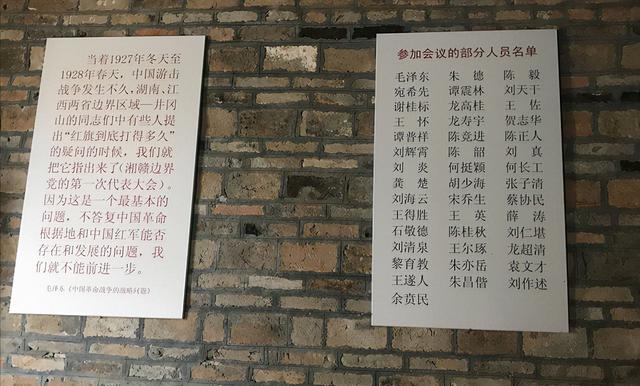 当着1927年冬天至
1928年春天，中国游击
战争发生不久，湖南、江
西两省边界区域—井冈
山的同志们中有些人提
出“红旗到底打得多久”
的疑问的时候，我们就
把它指出来了(湘赣边界
党的第一次代表大会)。
因为这是一个最基本的
问题，不答复中国革命
根据地和中国红军能否
存在和发展的问题，我
们就不能前进一步。
毛泽东《中国革命战争的战略问题》
参加会议的部分人员名单
毛泽东 朱德 陈毅
宛希先 谭震林 刘天干
谢桂标 龙高桂 王佐
王怀 龙寿宇 贺志华
谭普祥 陈竞进 陈正人
刘辉霄 陈韶 刘真
刘炎 何挺颖 何长工
龚楚 胡少海 张子清
刘海云 宋乔生 蔡协民
王得胜 王英 薛涛
石敬德 陈桂秋 刘仁堪
刘清泉 王尔琢 龙超清
黎育教 朱亦岳 袁文才
王遂人 朱昌偕 刘作述
余贲民